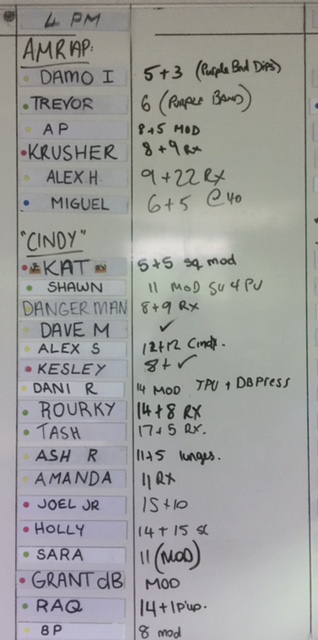 4 PM
AMRAP:
DAMO I 5+3 (Purple Band Dips)
TREVOR 6 (PURPLE BAND)
AP 8+5 MOD
KRUSHER 8+9 Rx
ALEX H 9+22 Rx
MIGUEL 6+5 @40
"CINDY"
KAT 5+5 sq mod
SHAWN 11 MOD SU 4 PU
DANGERMAN 8+9 RX
DAVE M ✓
ALEX S 12+12 Cindy.
KESLEY 8+ ✓
DANI R 14 MOD TPU + DB PRESS
ROURKY 14+8 RX
TASH 17+5 RX.
ASH R 11+5 lunges.
AMANDA 11 RX
JOEL JR 15+10
HOLLY 14+15 sc
SARA 11 (MOD)
GRANT dB MOD
RAQ 14+1 p'up.
BP 8 mod